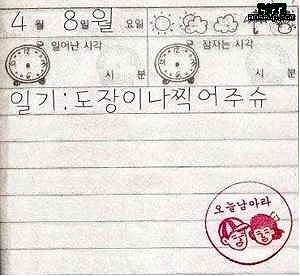 4 월 8일 월 요일
일어난 시각 잠자는 시각
시 분 시 분
일기:도장이나찍어주슈
오늘남아라